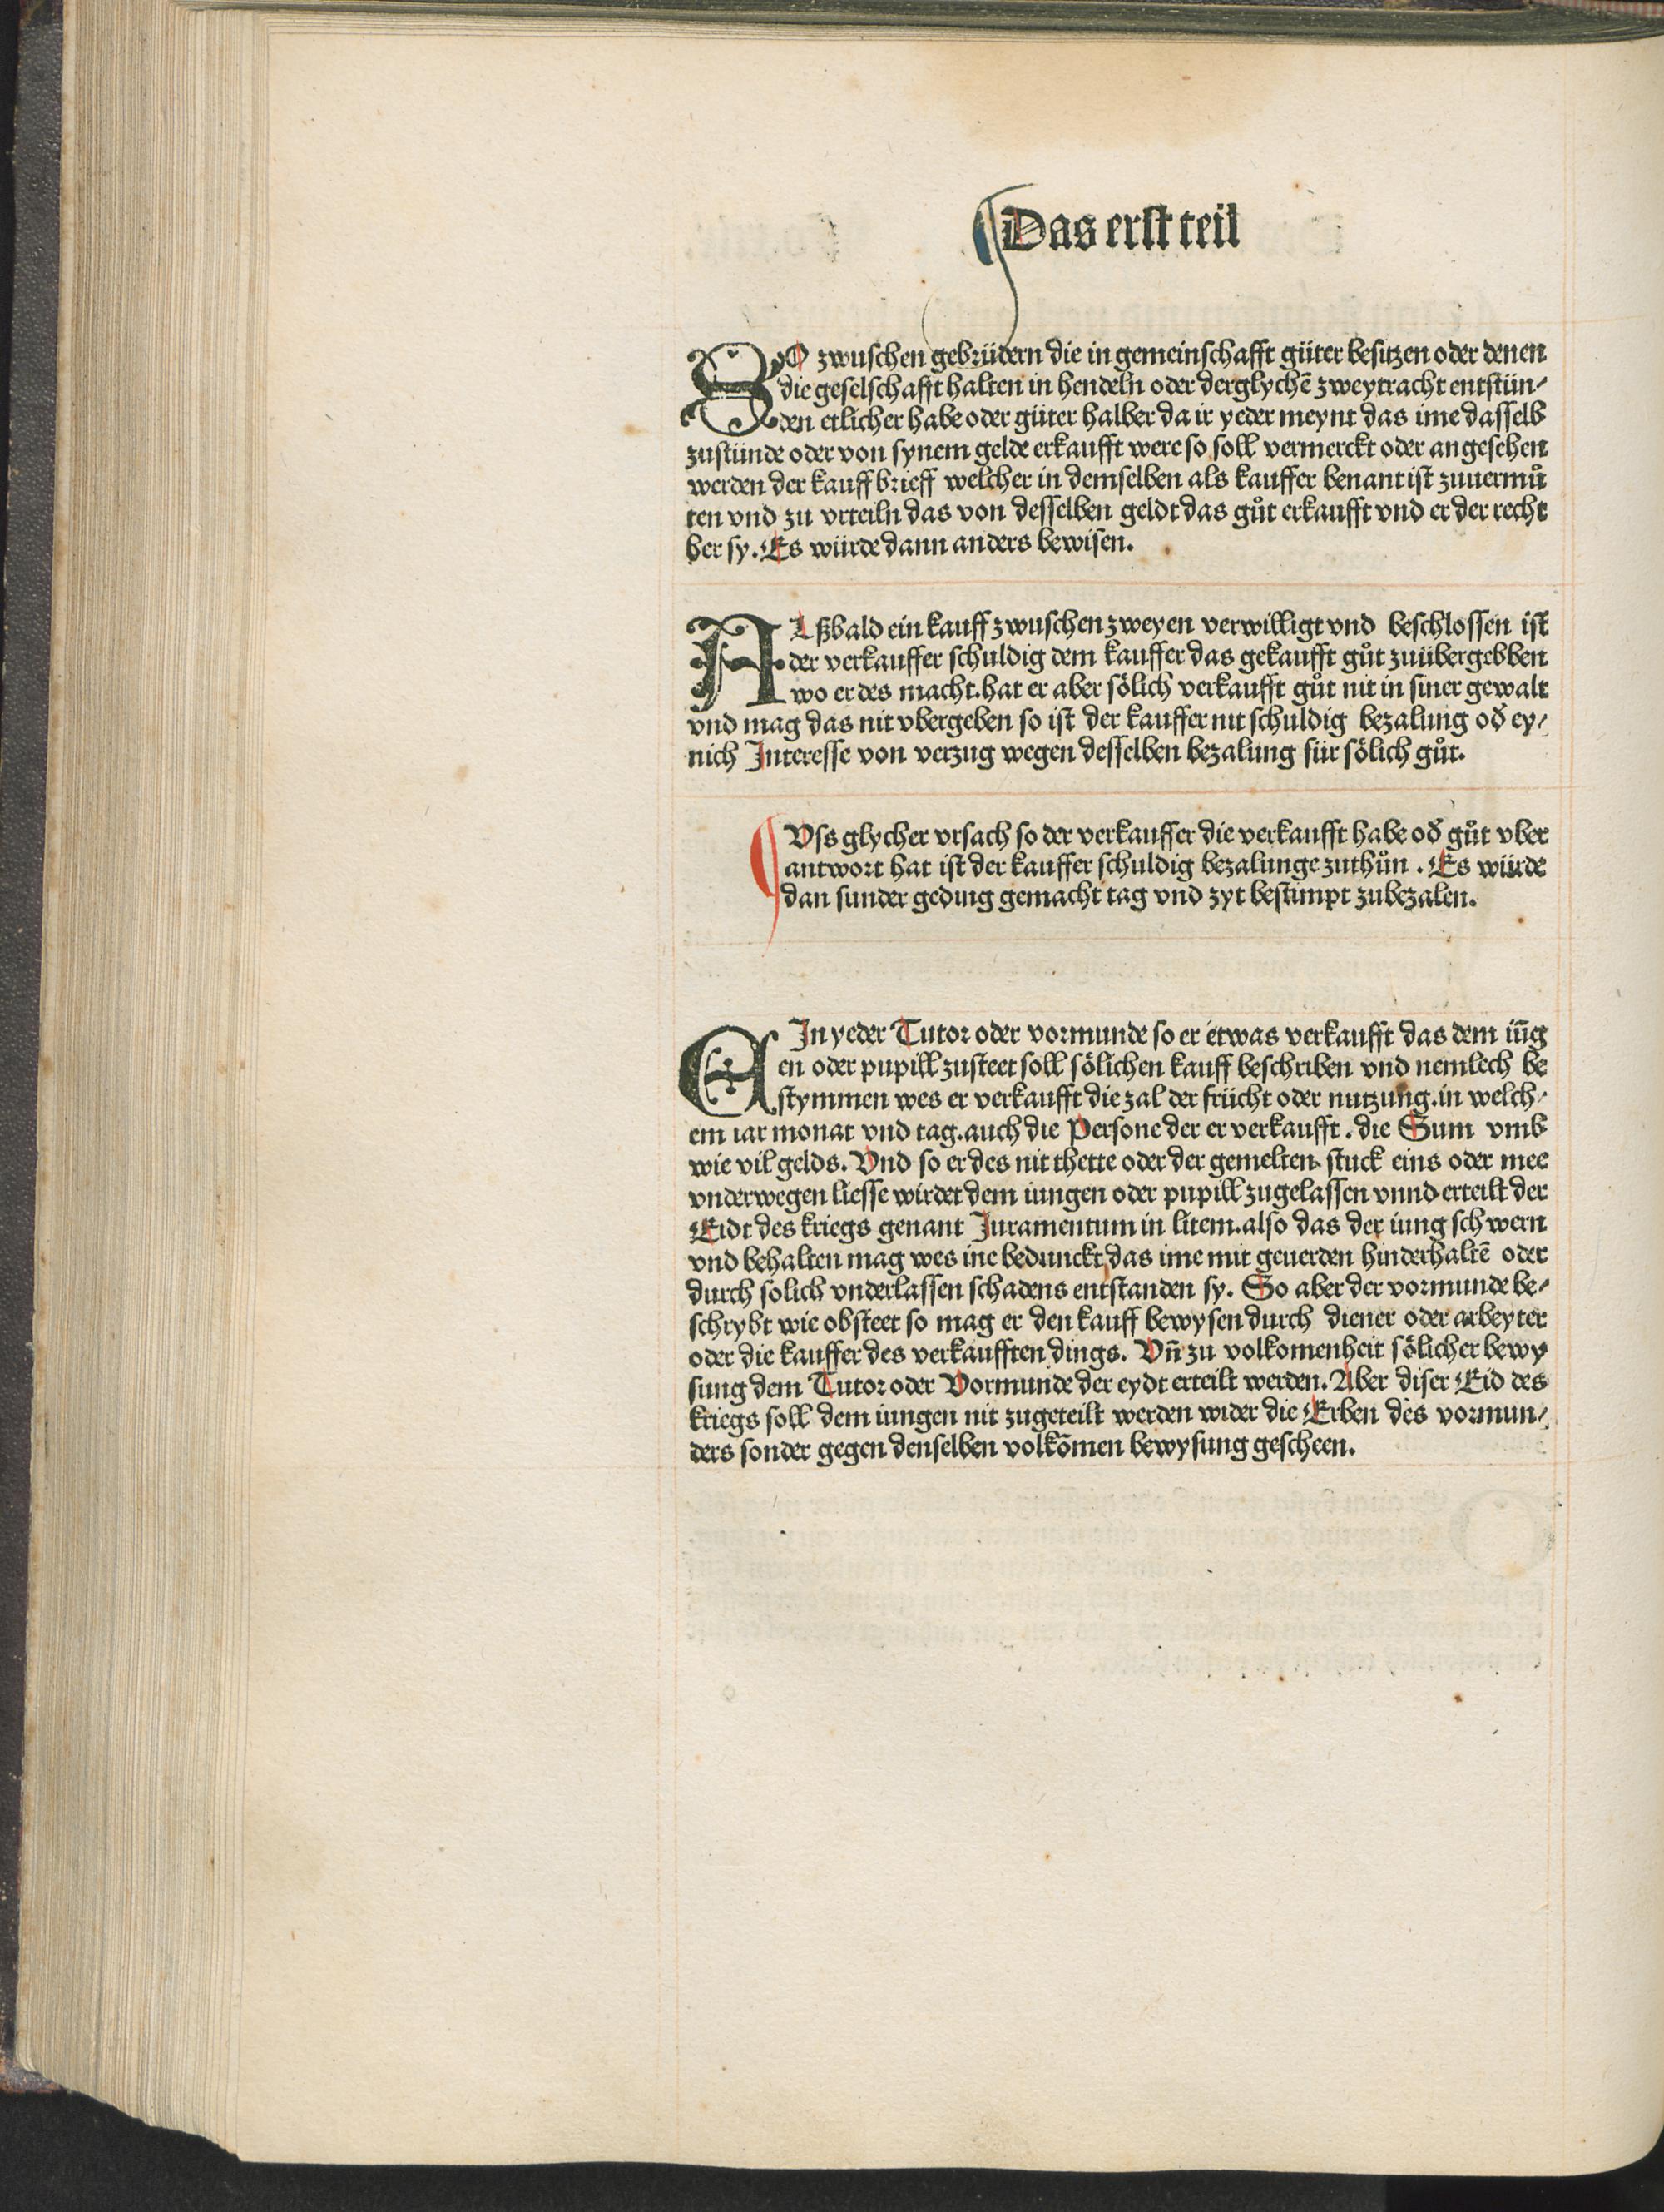 Das erst teil
SO zwuschen gebrüdern die in gemeinschafft güter besitzen oder denen
die geselschafft halten in hendeln oder derglychē zweytracht entstün⸗
den etlicher habe oder güter halber da ir yeder meynt das ime dasselb
zustünde oder von synem gelde erkaufft were so soll vermerckt oder angesehen
werden der kauff brieff welcher in demselben als kauffer benant ist zuuermůt
ten vnd zu vrteiln das von desselben geldt das gůt erkaufft vnd er der recht
her sy. Es würde dann anders bewisen.
ALßbald ein kauff zwuschen zweyen verwilligt vnd beschlossen ist
der verkauffer schuldig dem kauffer das gekaufft gůt zuübergebben
wo er des macht. hat er aber sölich verkaufft gůt nit in siner gewalt
vnd mag das nit vbergeben so ist der kauffer nit schuldig bezalung od̄ ey⸗
nich Interesse von verzug wegen desselben bezalung für sölich gůt.
Vss glycher vrsach so der verkauffer die verkaufft habe od̄ gůt vber
antwort hat ist der kauffer schuldig bezalunge zuthůn. Es würde
dan sunder geding gemacht tag vnd zyt bestimpt zubezalen.
EIn yeder Tutor oder vormunde so er etwas verkaufft das dem iūg
en oder pupill zusteet soll sölichen kauff beschriben vnd nemlech be
stymmen wes er verkaufft die zal der frücht oder nutzung. in welch⸗
em iar monat vnd tag. auch die Persone der er verkaufft. die Sum vmb
wie vil gelds. Vnd so er des nit thette oder der gemelten stuck eins oder mee
vnderwegen liesse wirdet dem iungen oder pupill zugelassen vnnd erteilt der
Eidt des kriegs genant Juramentum in litem. also das der iung schwern
vnd behalten mag wes ine bedunckt das ime mit geuerden hinderhaltē oder
durch solich vnderlassen schadens entstanden sy. So aber der vormunde be⸗
schrybt wie obsteet so mag er den kauff bewysen durch diener oder arbeyter
oder die kauffer des verkaufften dings. Vn̄ zu volkomenheit sölicher bewy
sung dem Tutor oder Vormunde der eydt erteilt werden. Aber diser Eid des
kriegs soll dem iungen nit zugeteilt werden wider die Erben des vormun⸗
ders sonder gegen denselben volkōmen bewysung gescheen.